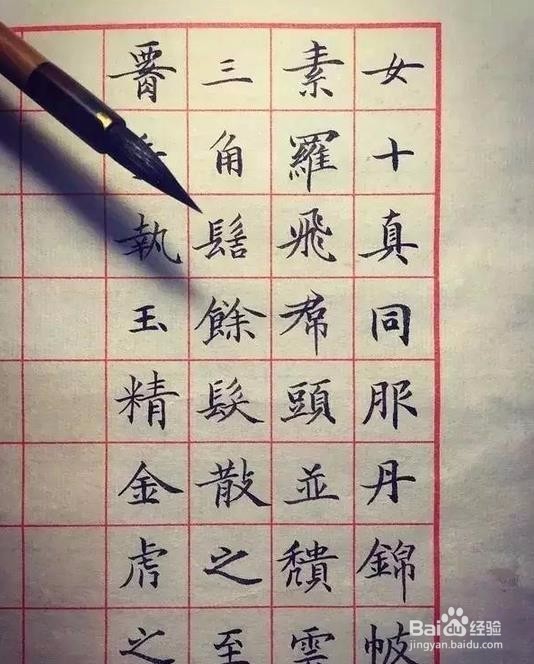 女十真同服丹錦帔
素羅飛帬頭並穨雲
三角髻餘髮散之至
執玉精金虎之
Baidu经验
jingyan.baidu.com